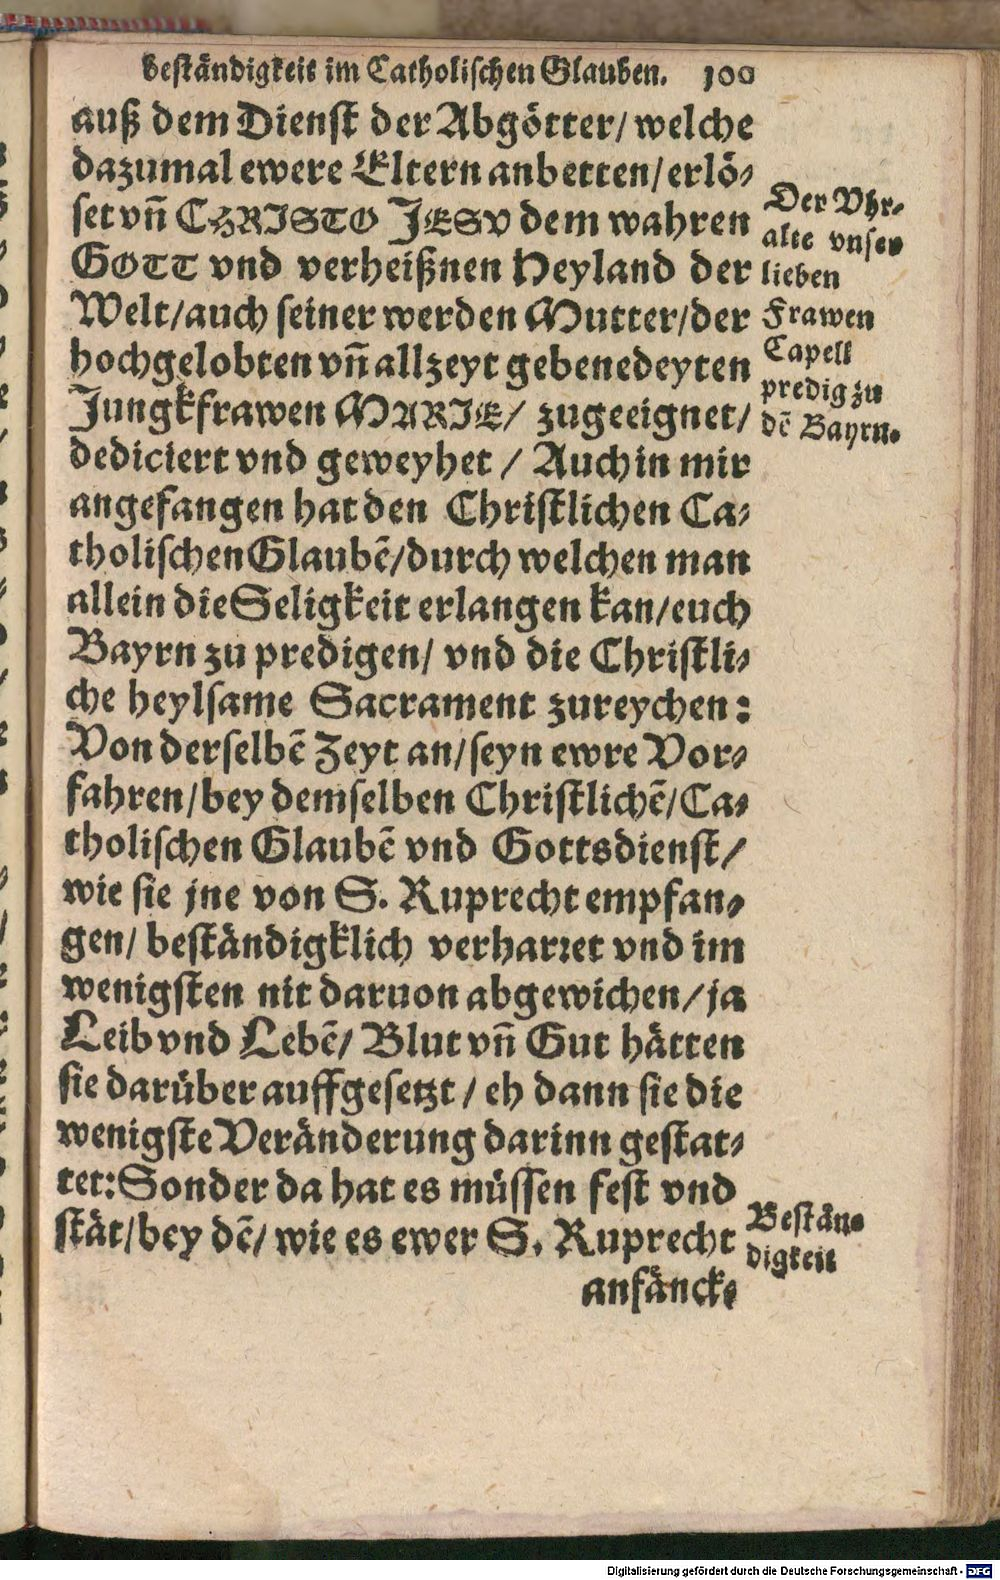 beständigkeit im Catholischen Glauben. 100
auß dem Dienst der Abgötter/ welche
dazumal ewere Eltern anbetten/ erlö-
set vñ CHRISTO JESV dem wahren
GOTT vnd verheißnen Heyland der
Welt/ auch seiner werden Mutter/ der
hochgelobten vñ allzeyt gebenedeyten
Jungkfrawen MARIE/ zugeeignet/
dediciert vnd geweyhet / Auch in mir
angefangen hat den Christlichen Ca-
tholischen Glaubẽ/ durch welchen man
allein die Seligkeit erlangen kan/ euch
Bayrn zu predigen/ vnd die Christli-
che heylsame Sacrament zureychen:
Von derselbẽ Zeyt an/ seyn ewre Vor-
fahren/ bey demselben Christlichẽ/ Ca-
tholischen Glaubẽ vnd Gottsdienst/
wie sie jne von S. Ruprecht empfan-
gen/ beständigklich verharret vnd im
wenigsten nit daruon abgewichen/ ja
Leib vnd Lebẽ/ Blut vñ Gut hätten
sie darüber auffgesetzt / eh dann sie die
wenigste Veränderung darinn gestat-
tet: Sonder da hat es müssen fest vnd
stät/ bey dẽ/ wie es ewer S. Ruprecht
anfänck-
Der Vhr-
alte vnser
lieben
Frawen
Capell
predig zu
dẽ Bayrn.
Bestän-
digkeit
Digitalisierung gefördert durch die Deutsche Forschungsgemeinschaft - DFG